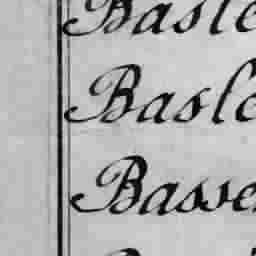 Basle
Basle
Basse